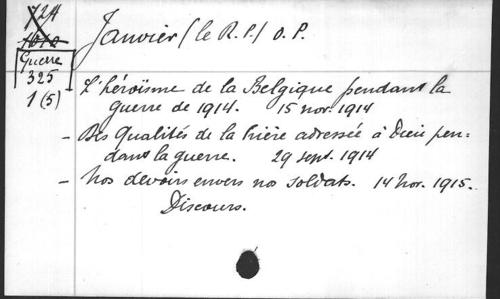 Janvier (le R.P.) O.P.
Guerre
325
1 (5)
L'héroïsme de la Belgique pendant la
guerre de 1914. 15 nov. 1914
- Des Qualités de la Prière adressée à Dieu pen-
dans la guerre. 29 sept. 1914
- Nos devoirs envers nos soldats. 14 Nov. 1915.
Discours.